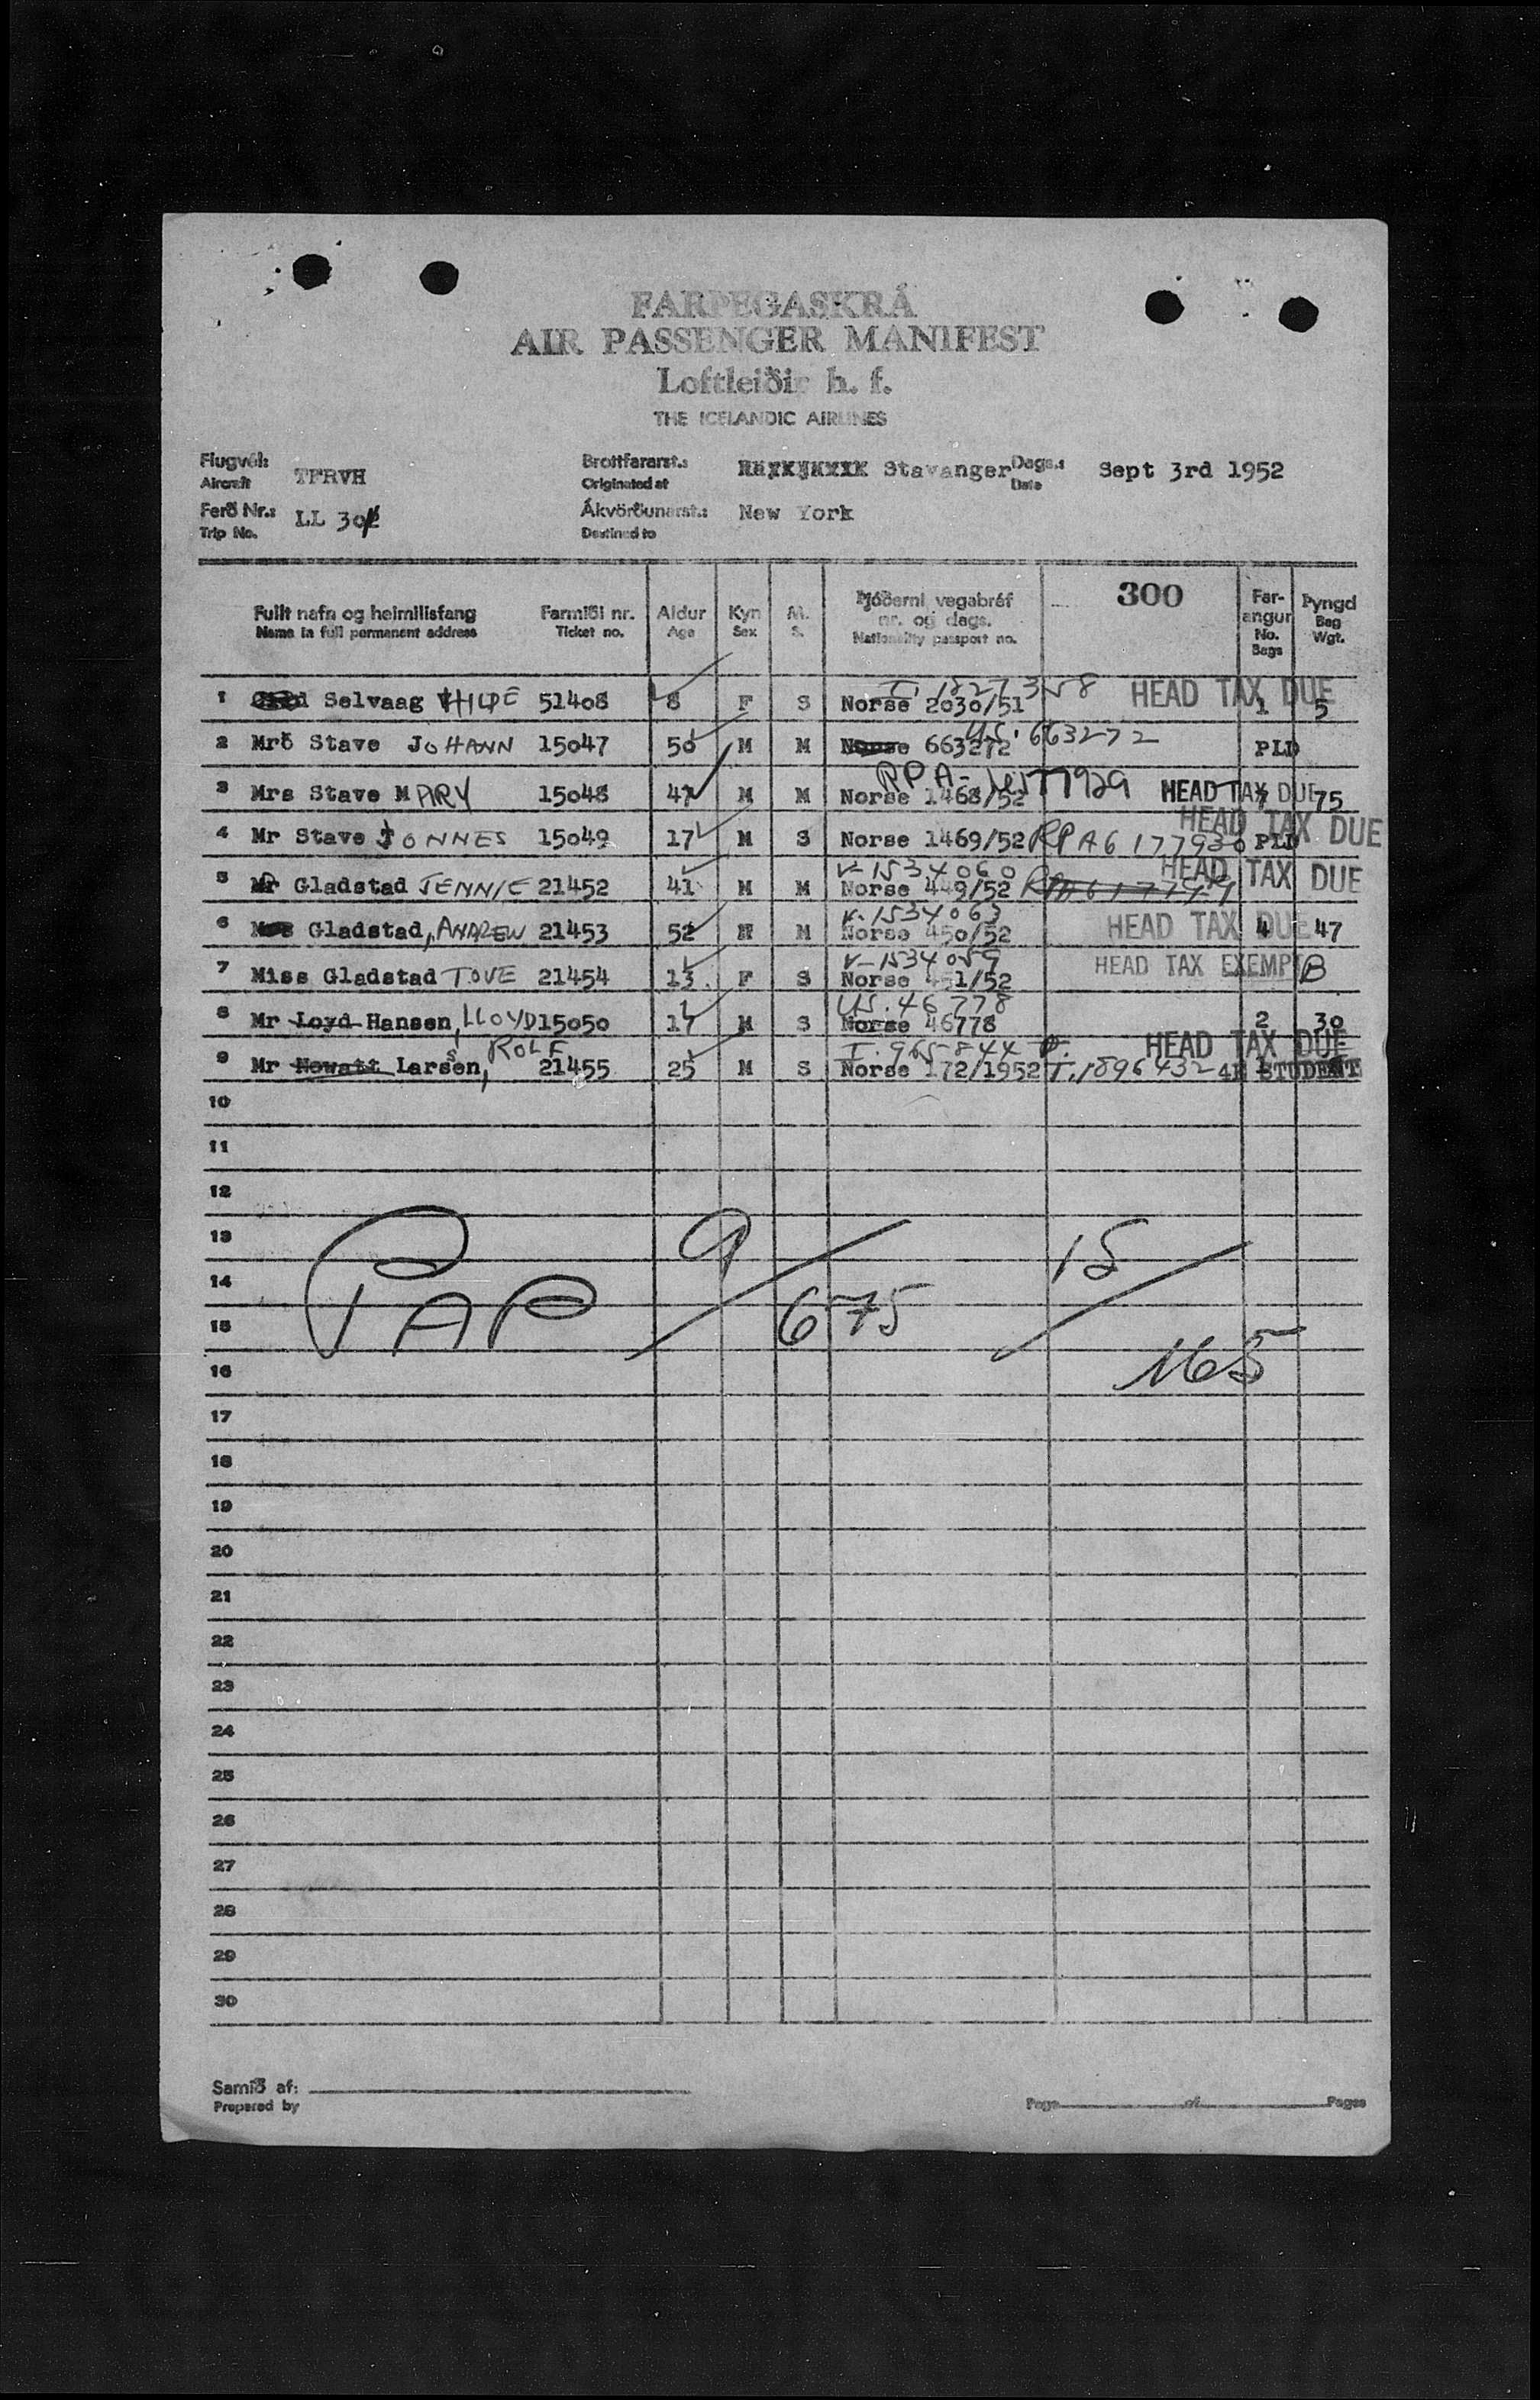 FARÞEGASKRÁ
AIR PASSENGER MANIFEST
Loftleiðir h. f.
THE ICELANDIC AIRLINES
Flugvél: TFRVH Brottfararst.: Stavanger Dags.: Sept 3rd 1952
Aircraft Originated at Date
Ferð Nr.: LL 302 Ákvörðunarst.: New York
Trip No. Destined to
300
Fullt nafn og heimilisfang Farmiði nr. Aldur Kyn M. Þjóðerni vegabréf nr. og dags. Far-angur Þyngd
Name in full permanent address Ticket no. Age Sex S. Nationality passport no. No. Bags Bag Wgt.
T. 1827358
1 Selvaag HILDE 51408 8 F S Norse 2030/51 HEAD TAX DUE 1 5
US. 663272
2 Mr Stave JOHANN 15047 50 M M Norse 663272 PLD
RPA-
3 Mrs Stave MARY 15048 47 M M Norse 1468/52 HEAD TAX DUE 75
4 Mr Stave JONNES 15049 17 M S Norse 1469/52 RPA 6177930 PLD HEAD TAX DUE
V-1534060
5 Gladstad JENNIE 21452 41 M M Norse 449/52 HEAD TAX DUE
V-1534063
6 Gladstad, ANDREW 21453 52 M M Norse 450/52 HEAD TAX DUE 4 47
V-1534059
7 Miss Gladstad TOVE 21454 13 F S Norse 451/52 HEAD TAX EXEMPT B
US. 46778
8 Mr Loyd Hansen, LLOYD 15050 17 M S Norse 46778 2 30
ROLF T. 965844 HEAD TAX DUE
9 Mr Howatt Larsen, 21455 25 M S Norse 172/1952 T. 1896432 4E STUDENT
10
11
12
13
14
15
PAP 9/675 15/165
16
17
18
19
20
21
22
23
24
25
26
27
28
29
30
Samið af:
Prepared by Page of Pages